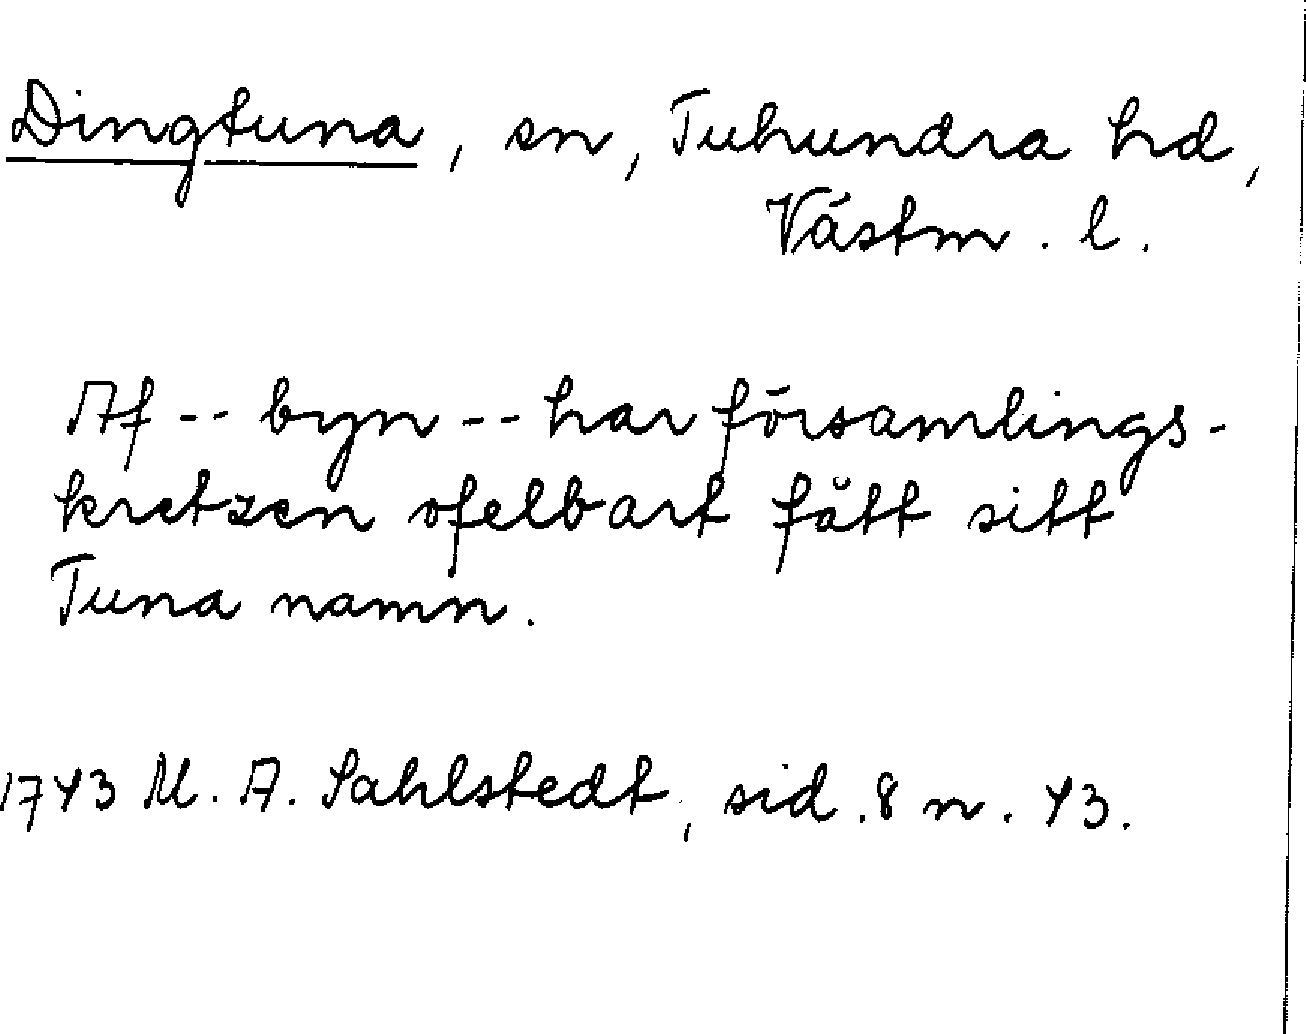 Dingtuna, sn, Tuhundra hd,
Västm. l.
Af -- byn -- har församblings-
kretzen ofelbart fått sitt
Tuna namn.
1743 M. A. Sahlstedt, sid. 8 n. 43.